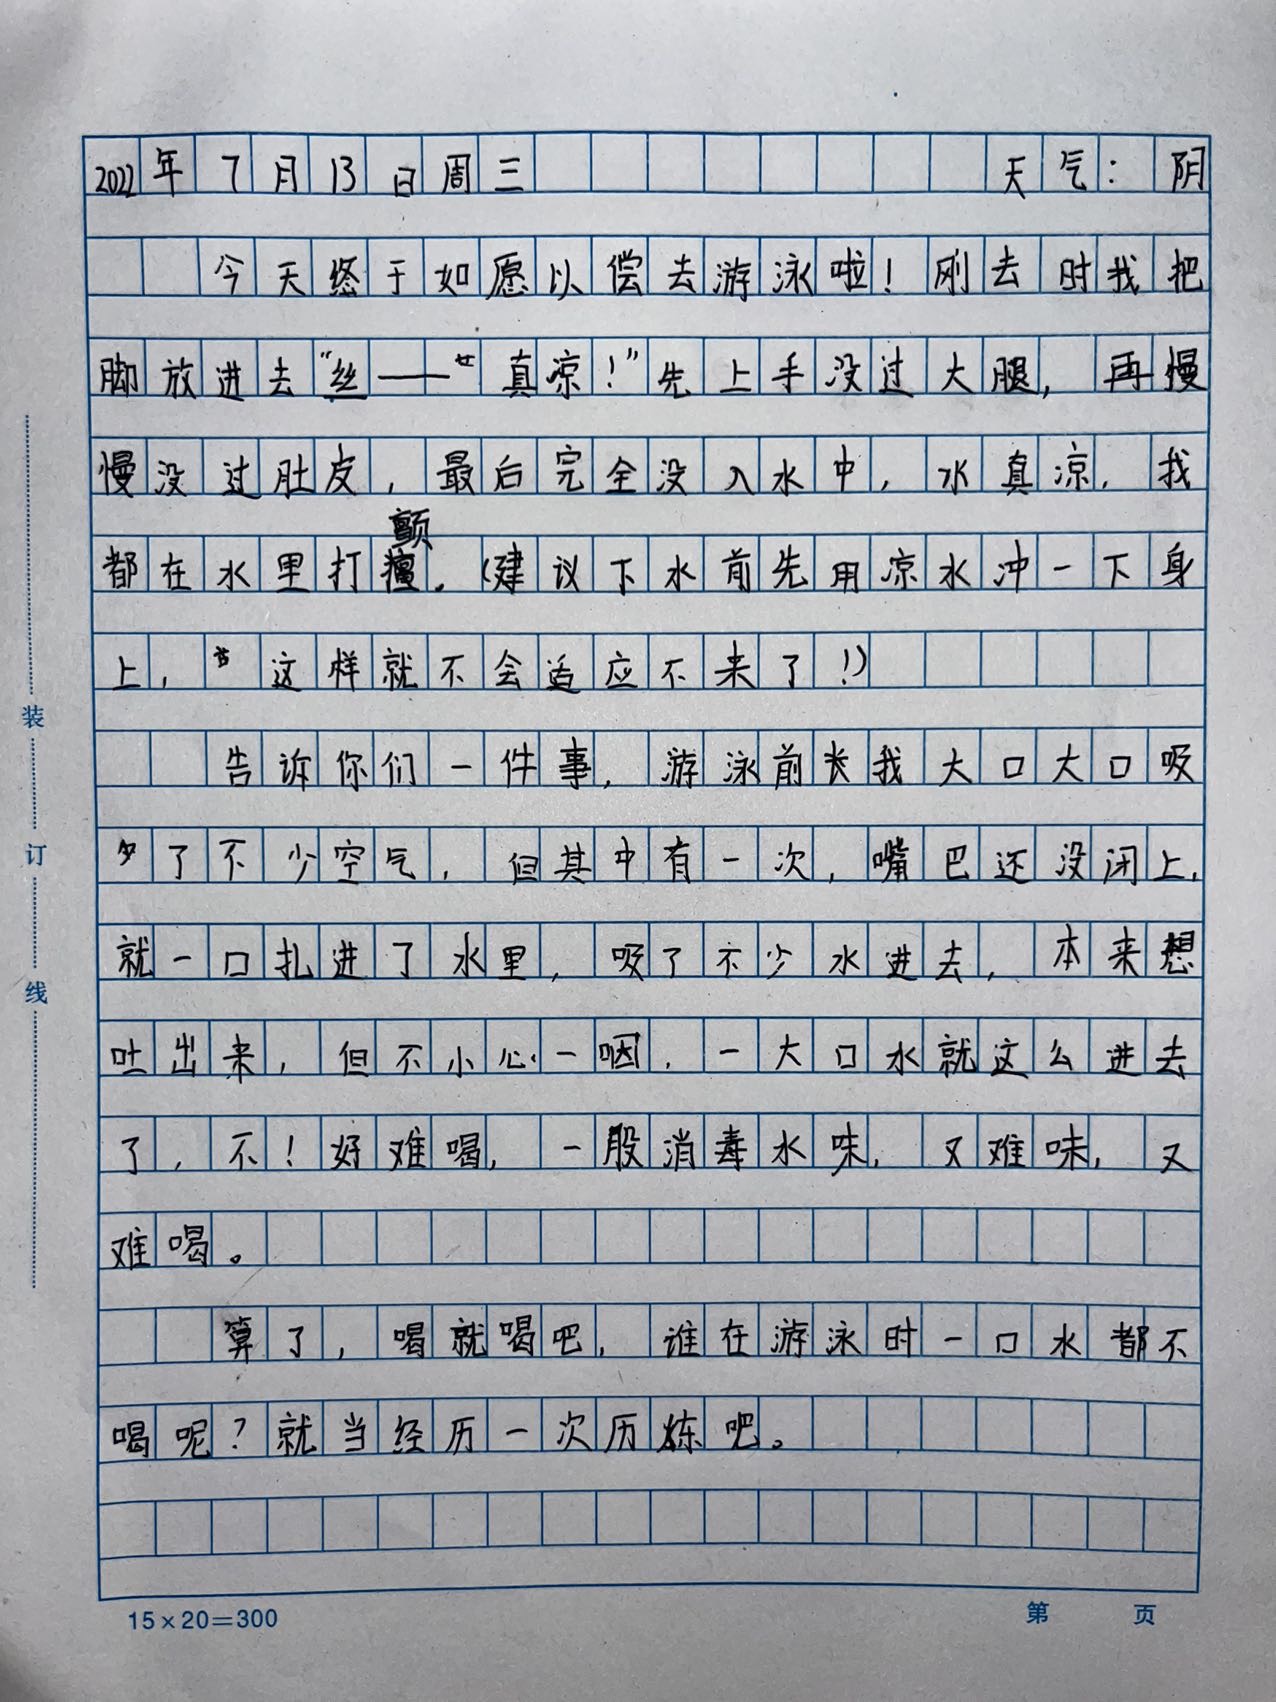 2022年7月13日周三 天气：阴
今天终于如愿以偿去游泳啦！刚去时我把
脚放进去“丝——”真凉！”先上手没过大腿，再慢
慢没过肚皮，最后完全没入水中，水真凉，我
都在水里打颤。（建议下水前先用凉水冲一下身
上，这样就不会适应不来了！）
告诉你们一件事，游泳前我大口大口吸
了不少空气，但其中有一次，嘴巴还没闭上，
就一口扎进了水里，吸了不少水进去，本来想
吐出来，但不小心一咽，一大口水就这么进去
了，不！好难喝，一股消毒水味，又难味，又
难喝。
算了，喝就喝吧，谁在游泳时一口水都不
喝呢？就当经历一次历炼吧。
装
订
线
15×20=300
第 页